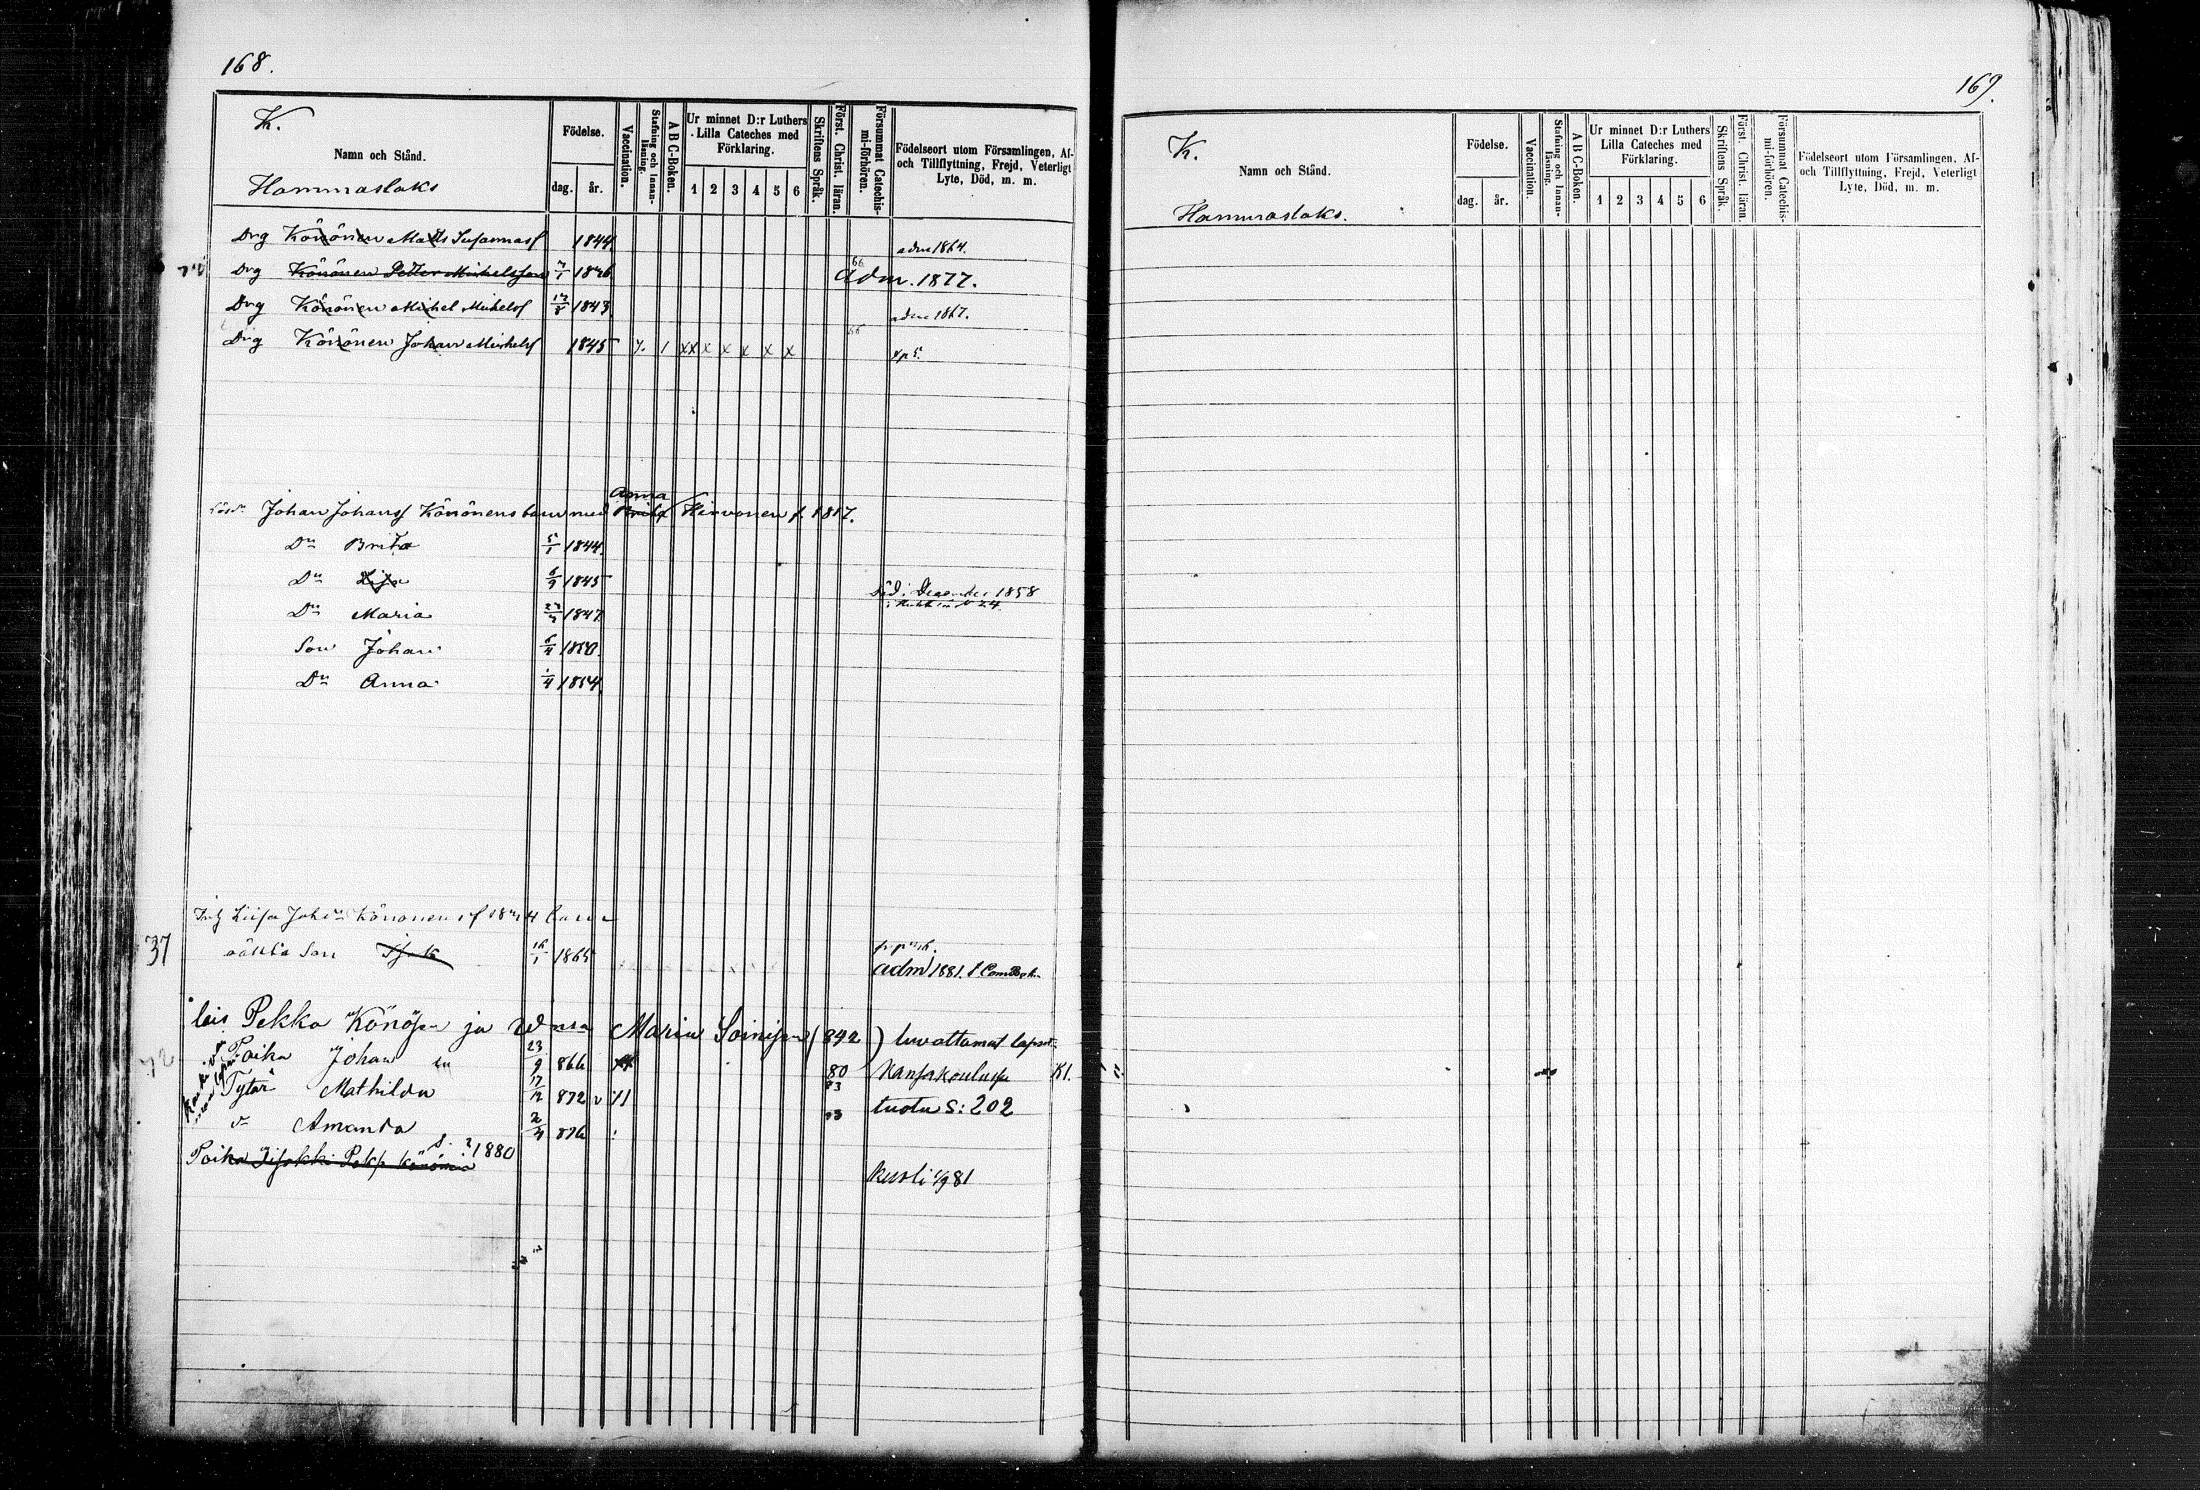 168.
K.
Namn och Stånd.
Hammaslaks
Födelse.
dag. år.
Vaccination.
Stafning och Innan-läsning.
A B C-Boken.
Ur minnet D:r Luthers Lilla Cateches med Förklaring.
1 2 3 4 5 6
Skriftens Språk.
Först. Christ. läran.
Försummat Catechis-mi-förhören.
Födelseort utom Församlingen, Af- och Tillflyttning, Frejd, Veterligt Lyte, Död, m. m.
Drg Könönen Matts Susannasf 1844 adm 1864.
Drg Könönen Petter Michelsson 7/1 1846 66 adm. 1877.
Drg Könönen Michel Michelsf 1843 adm 1867.
Drg Könönen Johan Michelsf 1845 1 xx x x x x x 66
Johan Johansf Könönens barn med Anna Brita Hirvonen f. 1817.
Dr Brita 5/1 1844
Dr Lisa 6/9 1845
död i December 1858
Dr Maria 1847
Son Johan 6/4 1850
Dr Anna 1/4 1854
Liisa Könönens barn
37 oäkta Son Isak 16/1 1865
adm 1881.
leis Pekka Könösen ja Maria Soinisen luvattomat lapset
72 Poika Johan 23/9 866 80 Kansakoulussa K1.
Tytär Mathilda 17/12 872 v 11 83
tuotu S: 202
Amanda 2/4 876 83
Poika Iisakki Pekp Könönen s. ? 1880
kuoli 1/9 81
169.
K.
Namn och Stånd.
Hammaslaks.
Födelse.
dag. år.
Vaccination.
Stafning och Innan-läsning.
A B C-Boken.
Ur minnet D:r Luthers Lilla Cateches med Förklaring.
1 2 3 4 5 6
Skriftens Språk.
Först. Christ. läran.
Försummat Catechis-mi-förhören.
Födelseort utom Församlingen, Af- och Tillflyttning, Frejd, Veterligt Lyte, Död, m. m.